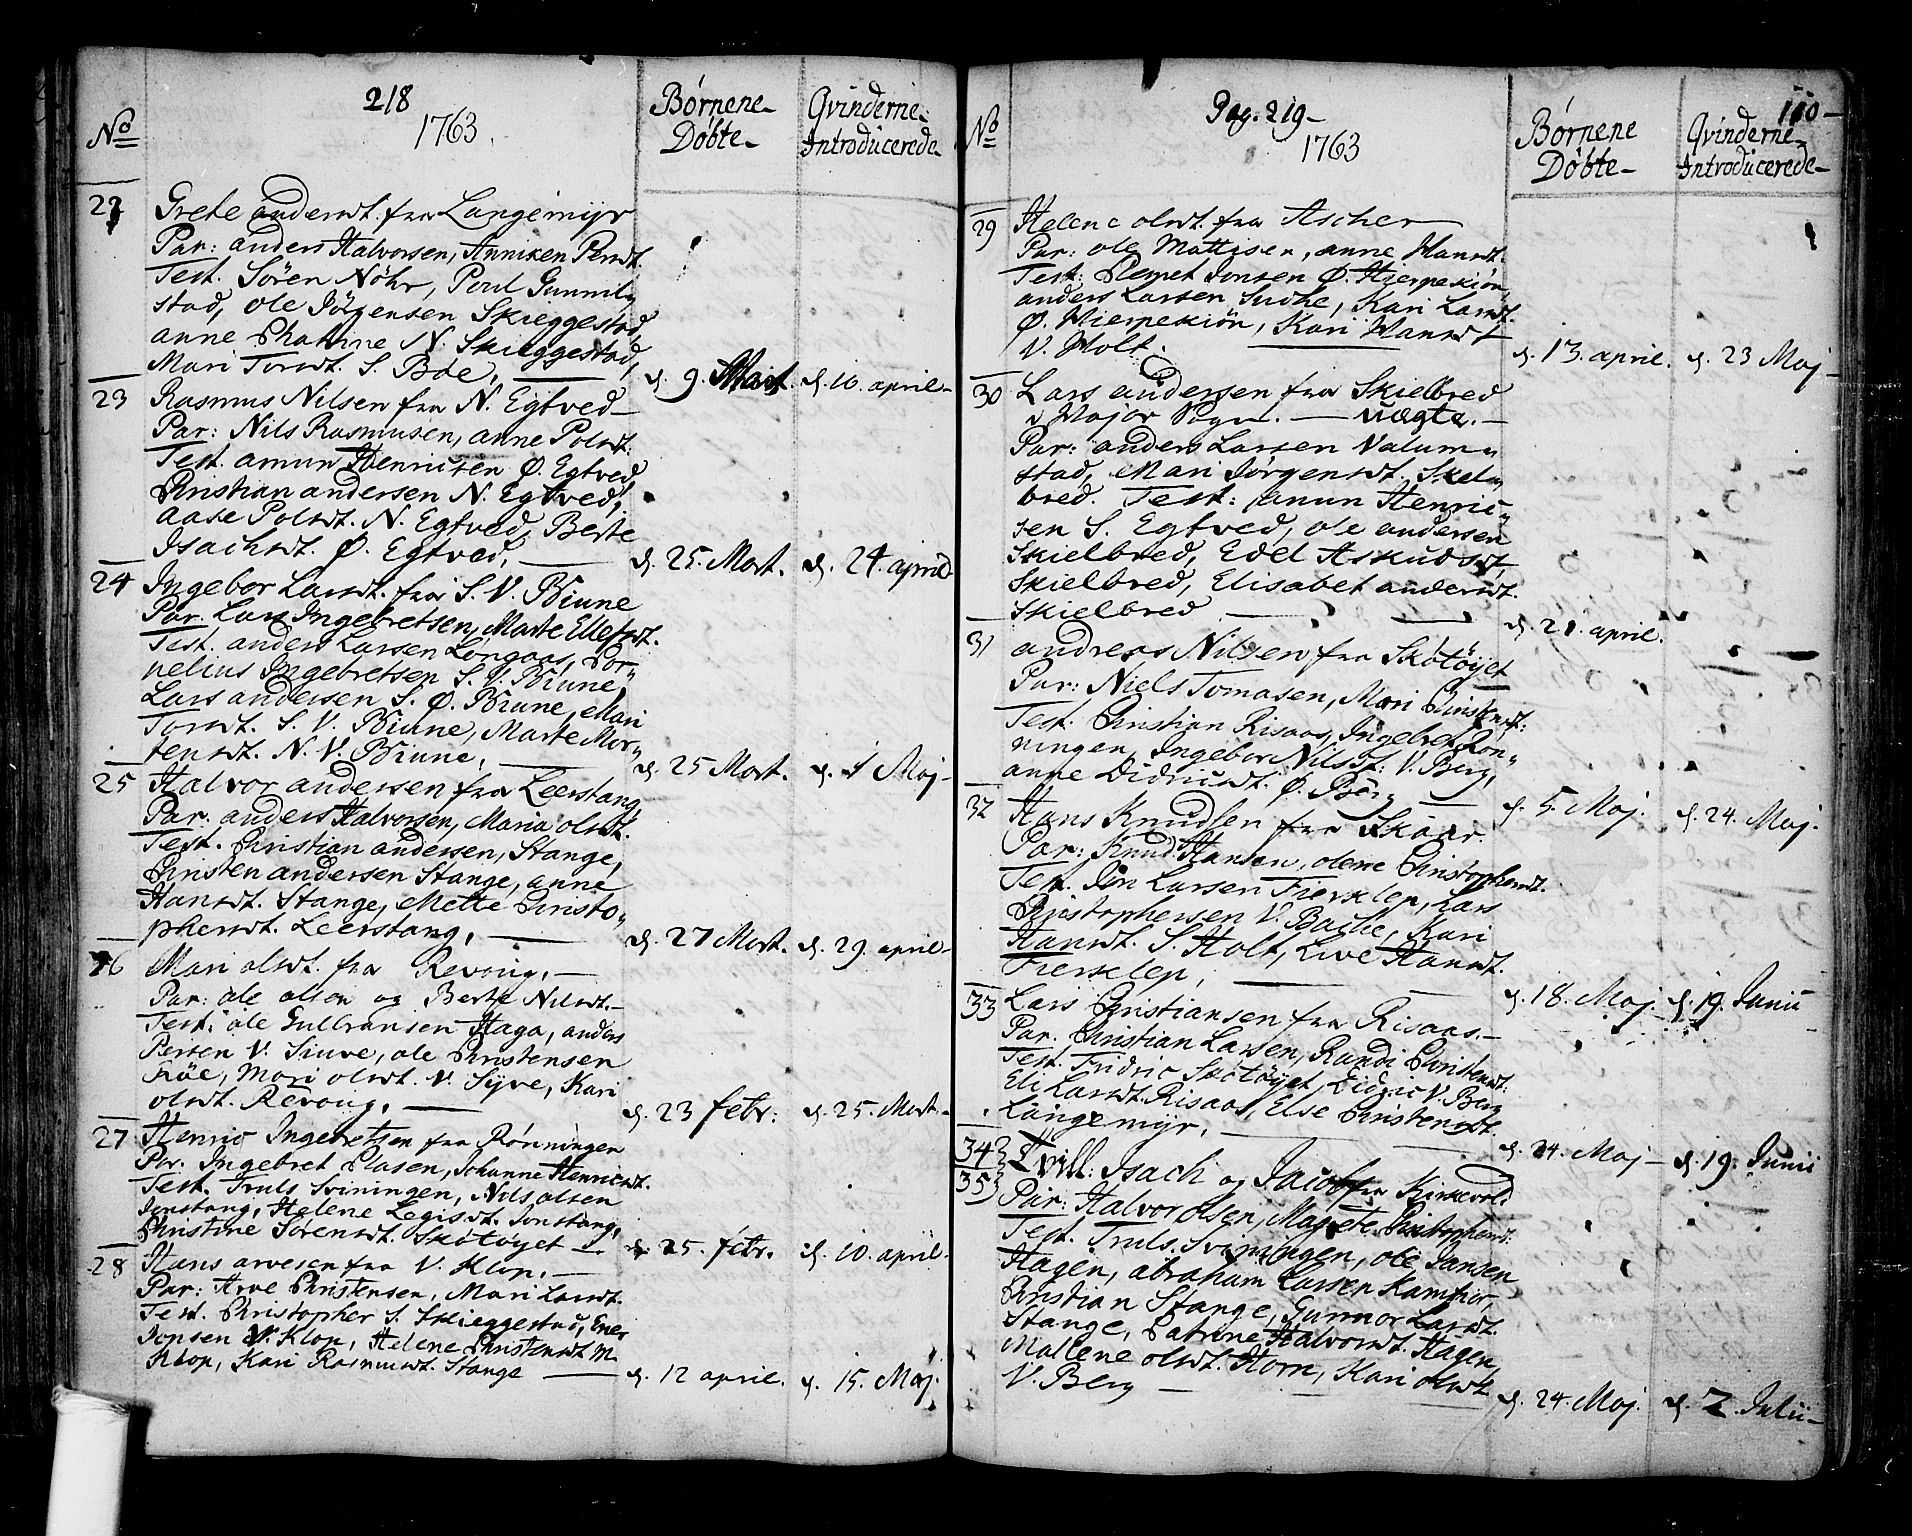 218
1763
No
Børnene
Døbte
Qvinderne
Introducerede
22
Grete andersdt. fra Langemyr
Par: anders Halvorsen, Anniken Persdt.
Test. Sören Nöhr, Poul Gunnil„
stad, ole Jörgensen Skieggestad,
anne Chatrine N. Skieggestad,
Mari Torsdt. S. Böe,
d. 9. Mart. d. 10. april
23
Rasmus Nilsen fra N. Egtved
Par: Nils Rasmusen, anne Polsdt.
Test. amun Henricsen Ø. Egtved,
Christian andersen N. Egtved,
aase Polsdt. N. Egtved, Berte
Isachsdt. Ø. Egtved,
d. 25. Mart. d. 24. april
24
Ingebor Larsdt. fra S. V. Biune
Par. Lars Ingebretsen, Marte Ellefsdt.
Test. anders Larsen Löngaas, Cor„
nelius Ingebretsen S. V. Biune,
Lars andersen S. Ø. Biune, Mari
Torsdt. S. V. Biune, Marte Mor„
tensdt. N. V. Biune,
d. 25 Mart. d. 1 Maj
25
Halvor andersen fra Leerstang,
Par. anders Halvorsen, Maria olsdt.
Test. Christian andersen, Stange,
Christen andersen Stange, anne
Hansdt. Stange, Mette Christo„
phersdt. Leerstang,
d. 27 Mart. d. 29. april
26
Mari olsdt. fra Revoug,
Par: ole olsen og Berte Nilsdt.
Test. ole Gulbransen Haga, anders
Persen V. Siuve, ole Christensen
Röe, Mari olsdt. V. Syve, Kari
olsdt. Revoug,
d. 23 febr: d. 25. Mart.
27
Henric Ingebretsen fra Rönningen
Par. Ingebret Olasen, Johanne Henricsdt.
Test. Truls Sviningen, Nils olsen
Jonstang, Helene Legisdt. Jonstang,
Christine Sörensdt. Skotöyet
d. 25. febr. d. 10. april
28
Hans arvesen fra V. Klop,
Par: Arve Christensen, Mari Larsdt.
Test. Christopher S. Skieggestad, Ener
Jonsen V. Klop, Helene Christensdt M.
Klop, Kari Rasmusdt. Stange
d. 12 april. d. 15. Maj.
Pag. 219
110
1763
No
Børnene
Døbte
Qvinderne
Introducerede
29
Helene olsdt. fra Ascher
Par: ole Mattisen, anne Hansdt.
Test: Clemet Jonsen Ø. Hierpekiön,
anders Larsen Suche, Kari Larsdt.
Ø. Hierpekiön, Kari Hansdt
V. Holt.
d. 13. april. d. 23 Maj
30
Lars andersen fra Skielbred
i Major Sogn. uægte.
Par: anders Larsen Valum„
stad, Mari Jörgensdt. Skel„
bred. Test: amun Henric„
sen S. Egtved, ole andersen
Skielbred, Edel Askudsdt
Skielbred, Elisabet andersdt.
Skielbred
d. 21. april.
31
andreas Nilsen fra Skotöyet
Par: Niels Tomasen, Mari Christensdt:
Test: Christian Risaas, Ingebret Rön„
ningen, Ingebor Nilsdt: V. Berg,
anne Didricsdt. Ø. Berg
d. 5. Maj. d. 24. Maj.
32
Hans Knudsen fra Skaar.
Par: Knud Hansen, olene Christophersdt.
Test. Jon Larsen Fierkelep, Lars
Christophersen V. Bache, Kari
Hansdt. S. Holt, Live Hansdt.
Fierkelep,
d. 18. Maj d. 19. Junii
33
Lars Christiansen fra Risaas.
Par. Christian Larsen, Randi Christensdt:
Test. Fridric Skotöyet, Didric V. Berg
Eli Larsdt. Risaas, Else Christensdt.
Langemyr,
d. 24. Maj d. 19. Junii
34
35
Tvill. Isach og Jacob fra Kirkevold
Par: Halvor olsen, Magrete Christophersdt:
Test. Truls Sviningen, ole Jansen
Hagen, abraham Larsen Kamhor,
Christian Stange, Gunnor Larsdt.
Stange, Catrine Halvorsdt. Hagen,
Mallene olsdt. Horn, Kari olsdt
V. Berg
d. 24. Maj. d. 2. Julii